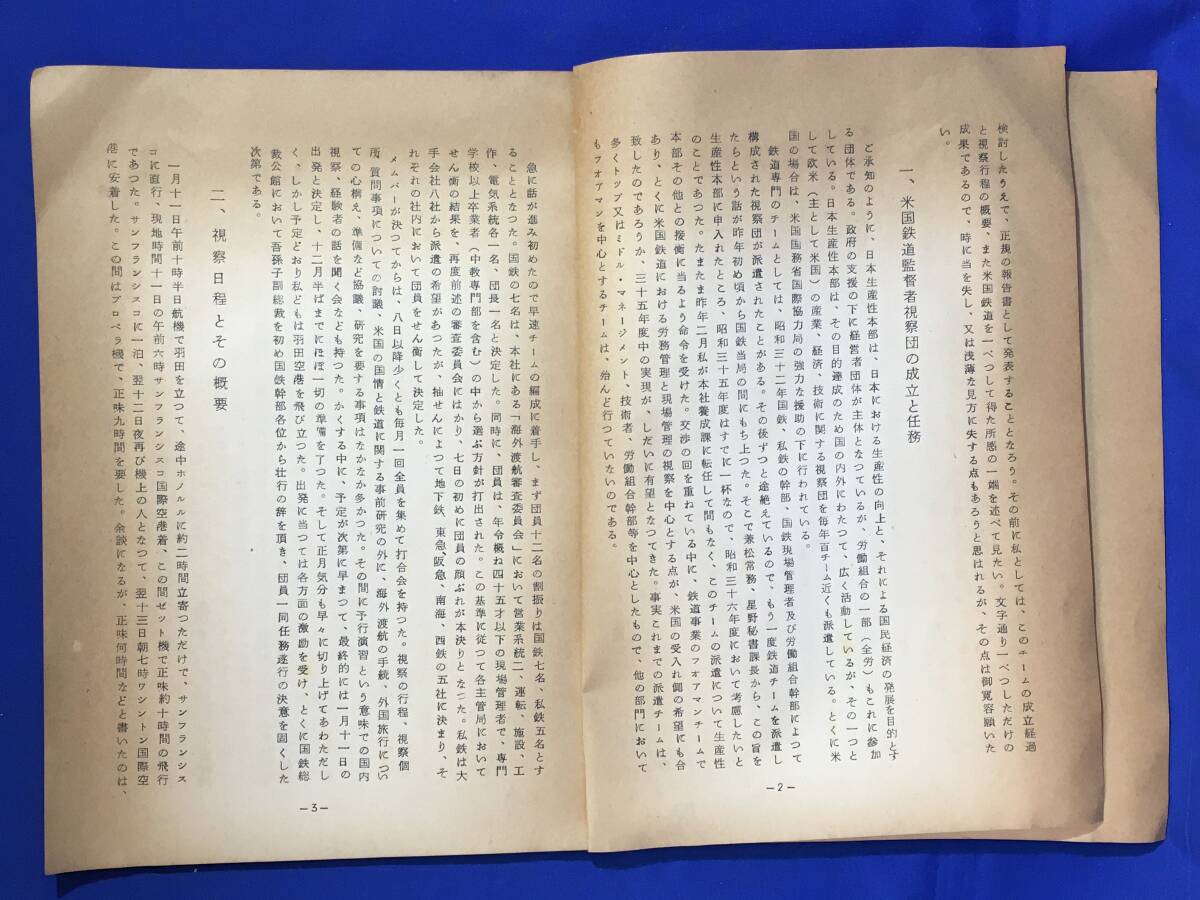 検討したうえで、正規の報告書として発表することとなろう。その前に私としては、このチームの成立経過
と視察行程の概要、また米国鉄道を一べつして得た所感の一端を述べて見たい。文字通り一べつしただけの
成果であるので、時に当を失し、又は浅薄な見方に失する点もあろうと思はれるが、その点は御寛容願いた
い。
一、米国鉄道監督者視察団の成立と任務
ご承知のように、日本生産性本部は、日本における生産性の向上と、それによる国民経済の発展を目的とす
る団体である。政府の支援の下に経営者団体が主体となつているが、労働組合の一部（全労）もこれに参加
している。日本生産性本部は、その目的達成のため国の内外にわたつて、広く活動しているが、その一つと
して欧米（主として米国）の産業、経済、技術に関する視察団を毎年百チーム近くも派遣している。とくに米
国の場合は、米国国務省国際協力局の強力な援助の下に行われている。
鉄道専門のチームとしては、昭和三十二年国鉄、私鉄の幹部、国鉄現場管理者及び労働組合幹部によつて
構成された視察団が派遣されたことがある。その後ずつと途絶えているので、もう一度鉄道チームを派遣し
たらという話が昨年初め頃から国鉄当局の間にもち上つた。そこで兼松常務、星野秘書課長から、この旨を
生産性本部に申入れたところ、昭和三十五年度はすでに一杯なので、昭和三十六年度において考慮したいと
のことであつた。たまたま昨年二月私が本社養成課に転任して間もなく、このチームの派遣について生産性
本部その他との接衝に当るよう命令を受けた。交渉の回を重ねている中に、鉄道事業のフオアマンチームで
あり、とくに米国鉄道における労務管理と現場管理の視察を中心とする点が、米国の受入れ側の希望にも合
致したのであろうか、三十五年度中の実現が、しだいに有望となつてきた。事実これまでの派遣チームは、
多くトツプ又はミドル・マネージメント、技術者、労働組合幹部等を中心としたもので、他の部門において
もフオアマンを中心とするチームは、殆んど行つていないのである。
—2—
急に話が進み初めたので早速チームの編成に着手し、まず団員十二名の割振りは国鉄七名、私鉄五名とす
ることとなつた。国鉄の七名は、本社にある「海外渡航審査委員会」において営業系統二、運転、施設、工
作、電気系統各一名、団長一名と決定した。同時に、団員は、年令概ね四十五才以下の現場管理者で、専門
学校以上卒業者（中教専門部を含む）の中から選ぶ方針が打出された。この基準に従つて各主管局において
せん衡の結果を、再度前述の審査委員会にはかり、七日の初めに団員の顔ぶれが本決りとなつた。私鉄は大
手会社八社から派遣の希望があつたが、抽せんによつて地下鉄、東急、阪急、南海、西鉄の五社に決まり、そ
れぞれの社内において団員をせん衡して決定した。
メムバーが決つてからは、八日以降少くとも毎月一回全員を集めて打合会を持つた。視察の行程、視察個
所、質問事項についての討議、米国の国情と鉄道に関する事前研究の外に、海外渡航の手続、外国旅行につい
ての心構え、準備など協議、研究を要する事項はなかなか多かつた。その間に予行演習という意味での国内
視察、経験者の話を聞く会なども持つた。かくする中に、予定が次第に早まつて、最終的には一月十一日の
出発と決定し、十二月半ばまでにほぼ一切の準備を了つた。そして正月気分も早々に切り上げてあわただし
く、しかし予定どおり私どもは羽田空港を飛び立つた。出発に当つては各方面の激励を受け、とくに国鉄総
裁公館において吾孫子副総裁を初め国鉄幹部各位から壮行の辞を頂き、団員一同任務遂行の決意を固くした
次第である。
二、視察日程とその概要
一月十一日午前十時半日航機で羽田を立つて、途中ホノルルに約二時間立寄つただけで、サンフランシス
コに直行、現地時間十一日の午前六時サンフランシスコ国際空港着、この間ゼット機で正味約十時間の飛行
であつた。サンフランシスコに一泊、翌十二日夜再び機上の人となつて、翌十三日朝七時ワシントン国際空
港に安着した。この間はプロペラ機で、正味九時間を要した。余談になるが、正味何時間などと書いたのは、
—3—